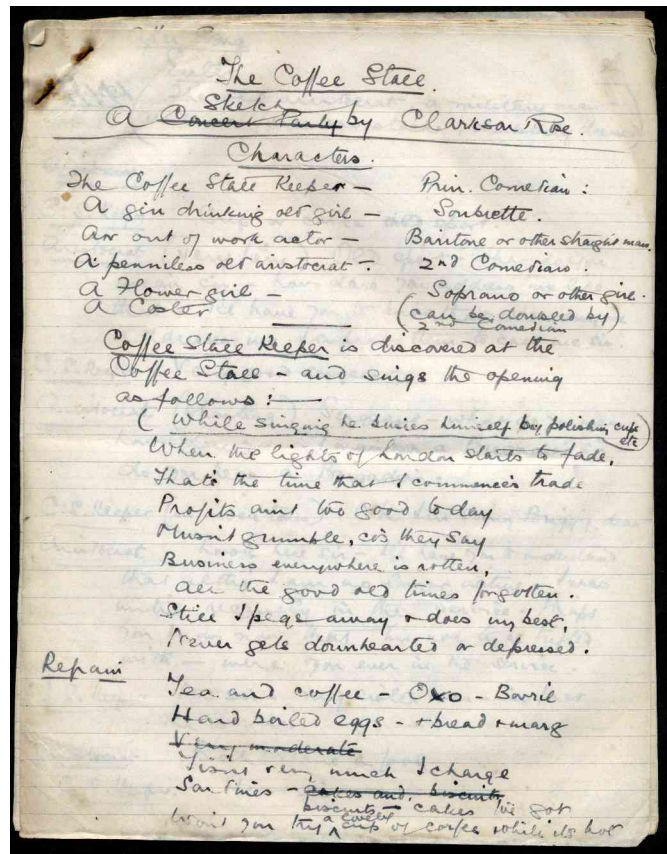 The Coffee Stall.
A Concert Party Sketch by Clarkson Rose.
Characters.
The Coffee Stall Keeper – Prin. Comedian :
A gin drinking old girl – Soubrette.
An out of work actor – Baritone or other straight man.
A penniless old aristocrat – 2nd Comedian.
A Flower girl – Soprano or other girl.
A Coster (can be doubled by)
2nd Comedian
Coffee Stall Keeper is discovered at the
Coffee Stall – and sings the opening
as follows : —
( While singing he busies himself by polishing cups
etc )
When the lights of London starts to fade,
Thats the time that I commences trade
Profits aint too good to day
Musn't grumble, cos they say
Business everywhere is rotten,
All the good old times forgotten.
Still I pegs away & does my best,
Never gets downhearted or depressed.
Refrain
Tea and coffee – Oxo – Bovril
Hard boiled eggs – & bread & marg
Very moderate
Tisnt very much I charge
Sardines – cakes and biscuits
biscuits – cakes I've got
Wont you try a lovely cup of corfee while its hot